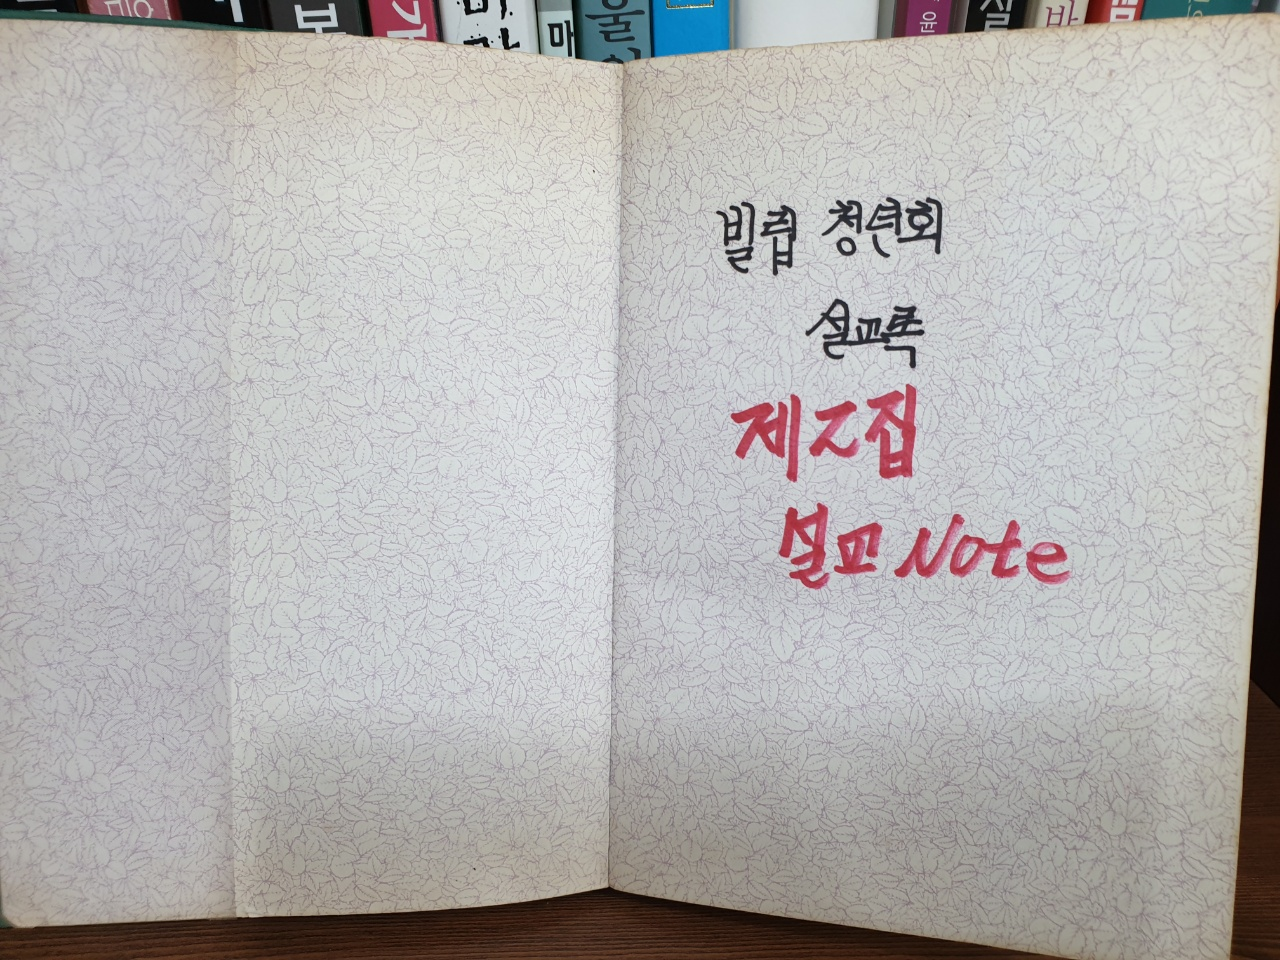 빌립 청년회
설교록
제Z집
설교 Note